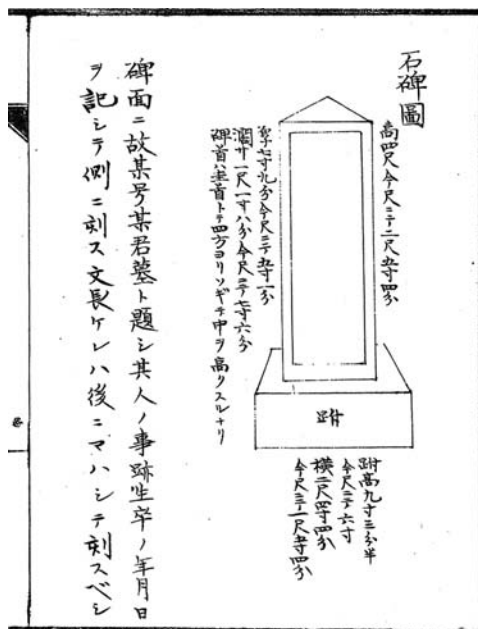 石碑圖
高四尺今尺ニテ二尺五寸四分
厚七寸九分今尺ニテ五寸一分
濶サ一尺一寸八分今尺ニテ七寸六分
碑首ハ圭首トテ四方ヨリソギテ中ヲ高クスルナリ
趺
趺高九寸三分半
今尺ニテ六寸
横二尺四寸四分
今尺ニテ一尺五寸四分
碑面ニ故某号某君墓ト題シ其人ノ事跡生卒ノ年月日
ヲ記シテ側ニ刻ス文長ケレハ後ニマハシテ刻スベシ